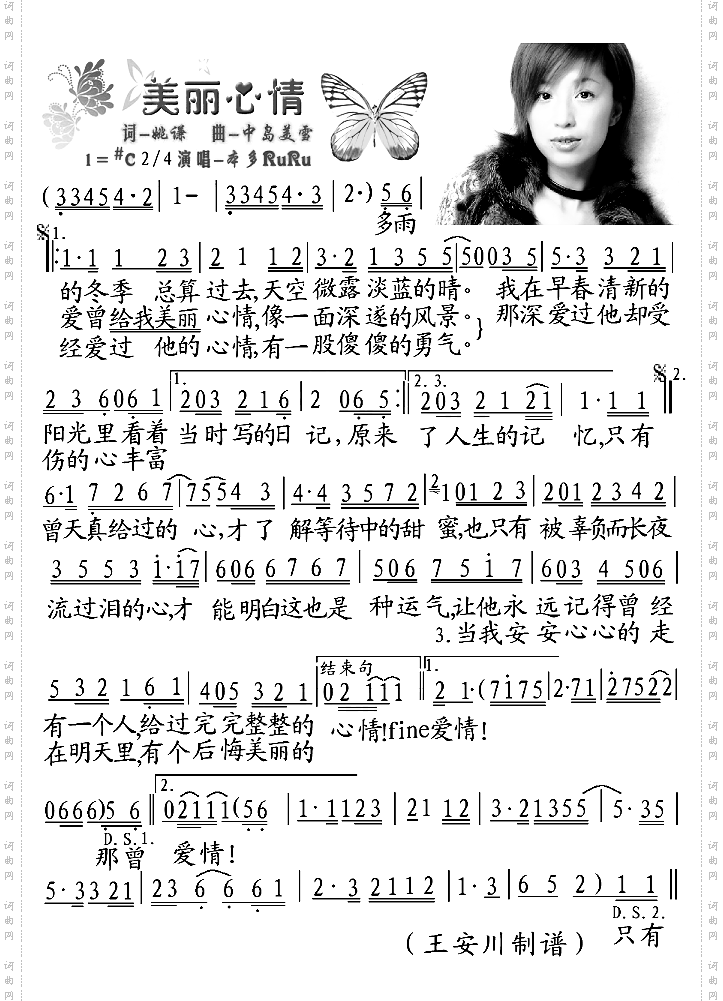 美丽心情
词—姚谦 曲—中岛美雪
1=#C 2/4 演唱—本多RuRu
(33454·2 | 1- | 33454·3 | 2·) 5 6 |
多雨
1.
1·1 1 2 3 | 2 1 1 2 | 3·2 1 3 5 5 | 5003 5 | 5·3 3 2 1 |
的冬季 总算 过去,天空 微露 淡蓝的晴。 我在早春清新的
爱曾给我美丽 心情,像一面深遂的风景。} 那深爱过他却受
经爱过 他的心情,有一股傻傻的勇气。
1. 2.3. 2.
2 3 606 1 | 203 2 1 6 | 2 06 5 :‖ 203 2 1 21 | 1·1 1 ‖
阳光里看着 当时写的日 记,原来 了人生的记 忆,只有
伤的心丰富
6·1 7 2 6 7 | 7554 3 | 4·4 3 5 7 2 | 2 101 2 3 | 201 2 3 4 2 |
曾天真给过的 心,才了 解等待中的甜 蜜,也只有 被辜负而长夜
3 5 5 3 1·17 | 606 6 7 6 7 | 506 7 5 1 7 | 603 4 506 |
流过泪的心,才 能明白这也是 种运气,让他永 远记得曾经
3.当我安安心心的走
结束句 1.
5 3 2 1 6 1 | 405 3 2 1 | 02 111 ‖ 2 1·(7175 | 2·71 | 27522 |
有一个人,给过完完整整的 心情!fine爱情!
在明天里,有个后悔美丽的
2.
0666 6)5 6 ‖ 02111(56 | 1·1123 | 21 12 | 3·21355 | 5·35 |
D.S.1.
那曾 爱情!
5·3321 | 23 6 6 61 | 2·3 2112 | 1·3 | 6 5 2 ) 1 1 ‖
D.S.2.
只有
(王安川制谱)
词曲网